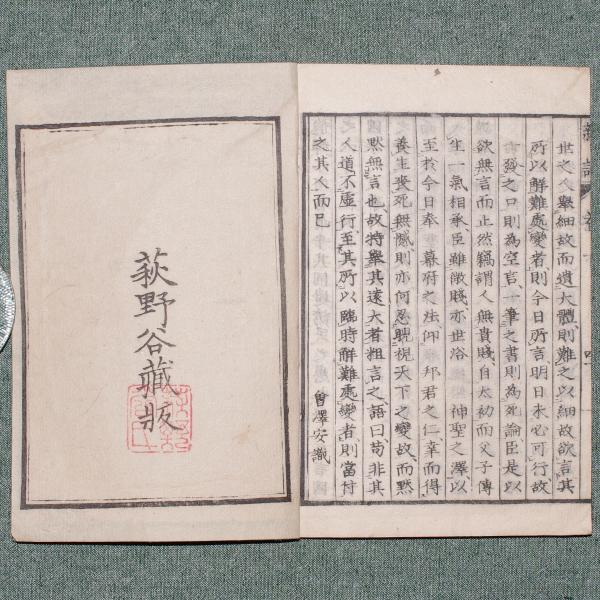 世之人擧細故而遺大體則難之以細故欲言其
所以解難處變者則今日所言明日未必可行故
發之口則為空言筆之書則為死論臣是以
欲無言而止然竊謂人無貴賤自太初而父子傳
生一氣相承臣雖微賤亦世浴 神聖之澤以
至於今日奉 幕府之法仰 邦君之仁幸而得
養生喪死無憾則亦何忍睨視天下之變故而默
默無言也故特擧其遠大者粗言之語曰苟非其
人道不虛行至其所以臨時解難處變者則當付
之其人而已
會澤安識
荻野谷藏版